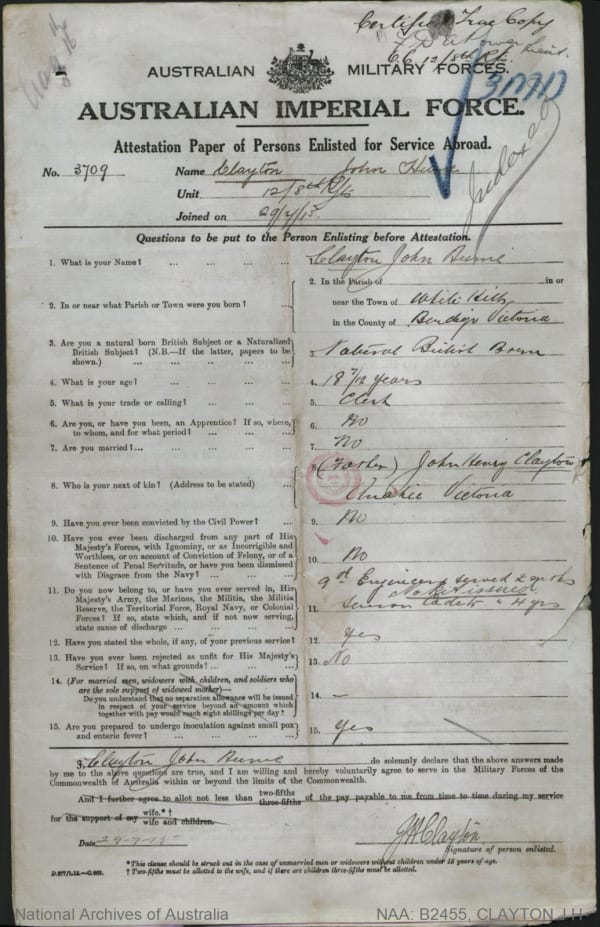 Certified True Copy
C.C. 12/8th Rfts.
3MD
AUSTRALIAN MILITARY FORCES.
AUSTRALIAN IMPERIAL FORCE.
Attestation Paper of Persons Enlisted for Service Abroad.
Indexed
No. 3709 Name Clayton John
Unit 12/8th Rfts
Joined on 29/7/15.
Questions to be put to the Person Enlisting before Attestation.
1. What is your Name? ... ... ... ... 1. Clayton John
2. In or near what Parish or Town were you born? ...
2. In the Parish of in or
near the Town of White Hills
in the County of Bendigo Victoria
3. Are you a natural born British Subject or a Naturalized
British Subject? (N.B.—If the latter, papers to be
shown.) ... ... ... ... ...
3. Natural British Born
4. What is your age? ... ... ... ... 4. 18 7/12 years
5. What is your trade or calling? ... ... ... 5. Clerk
6. Are you, or have you been, an Apprentice? If so, where,
to whom, and for what period? ... ... ...
6. No
7. Are you married?... ... ... ... ... 7. No
8. Who is your next of kin? (Address to be stated) ...
8. (Father) John Henry Clayton
Anakie Victoria
9. Have you ever been convicted by the Civil Power? ... 9. No
10. Have you ever been discharged from any part of His
Majesty's Forces, with Ignominy, or as Incorrigible and
Worthless, or on account of Conviction of Felony, or of a
Sentence of Penal Servitude, or have you been dismissed
with Disgrace from the Navy? ... ... ...
10. No
11. Do you now belong to, or have you ever served in, His
Majesty's Army, the Marines, the Militia, the Militia
Reserve, the Territorial Force, Royal Navy, or Colonial
Forces? If so, state which, and if not now serving,
state cause of discharge ... ... ...
9th Engineers served 2
No Kit issued
11. Senior Cadets " 4 yrs
12. Have you stated the whole, if any, of your previous service? 12. Yes
13. Have you ever been rejected as unfit for His Majesty's
Service? If so, on what grounds? ... ... ...
13. No
14. (For married men, widowers with children, and soldiers who
are the sole support of widowed mother)—
Do you understand that no separation allowance will be issued
in respect of your service beyond an amount which
together with pay would reach eight shillings per day?
14. —
15. Are you prepared to undergo inoculation against small pox
and enteric fever? ... ... ... ...
15. Yes
I, Clayton John do solemnly declare that the above answers made
by me to the above questions are true, and I am willing and hereby voluntarily agree to serve in the Military Forces of the
Commonwealth of Australia within or beyond the limits of the Commonwealth.
And I further agree to allot not less than two-fifths three-fifths of the pay payable to me from time to time during my service
for the support of my wife.*† wife and children.
Date 29-7-15 J H Clayton
Signature of person enlisted.
*This clause should be struck out in the case of unmarried men or widowers without children under 18 years of age.
† Two-fifths must be allotted to the wife, and if there are children three-fifths must be allotted.
National Archives of Australia NAA: B2455, CLAYTON J H